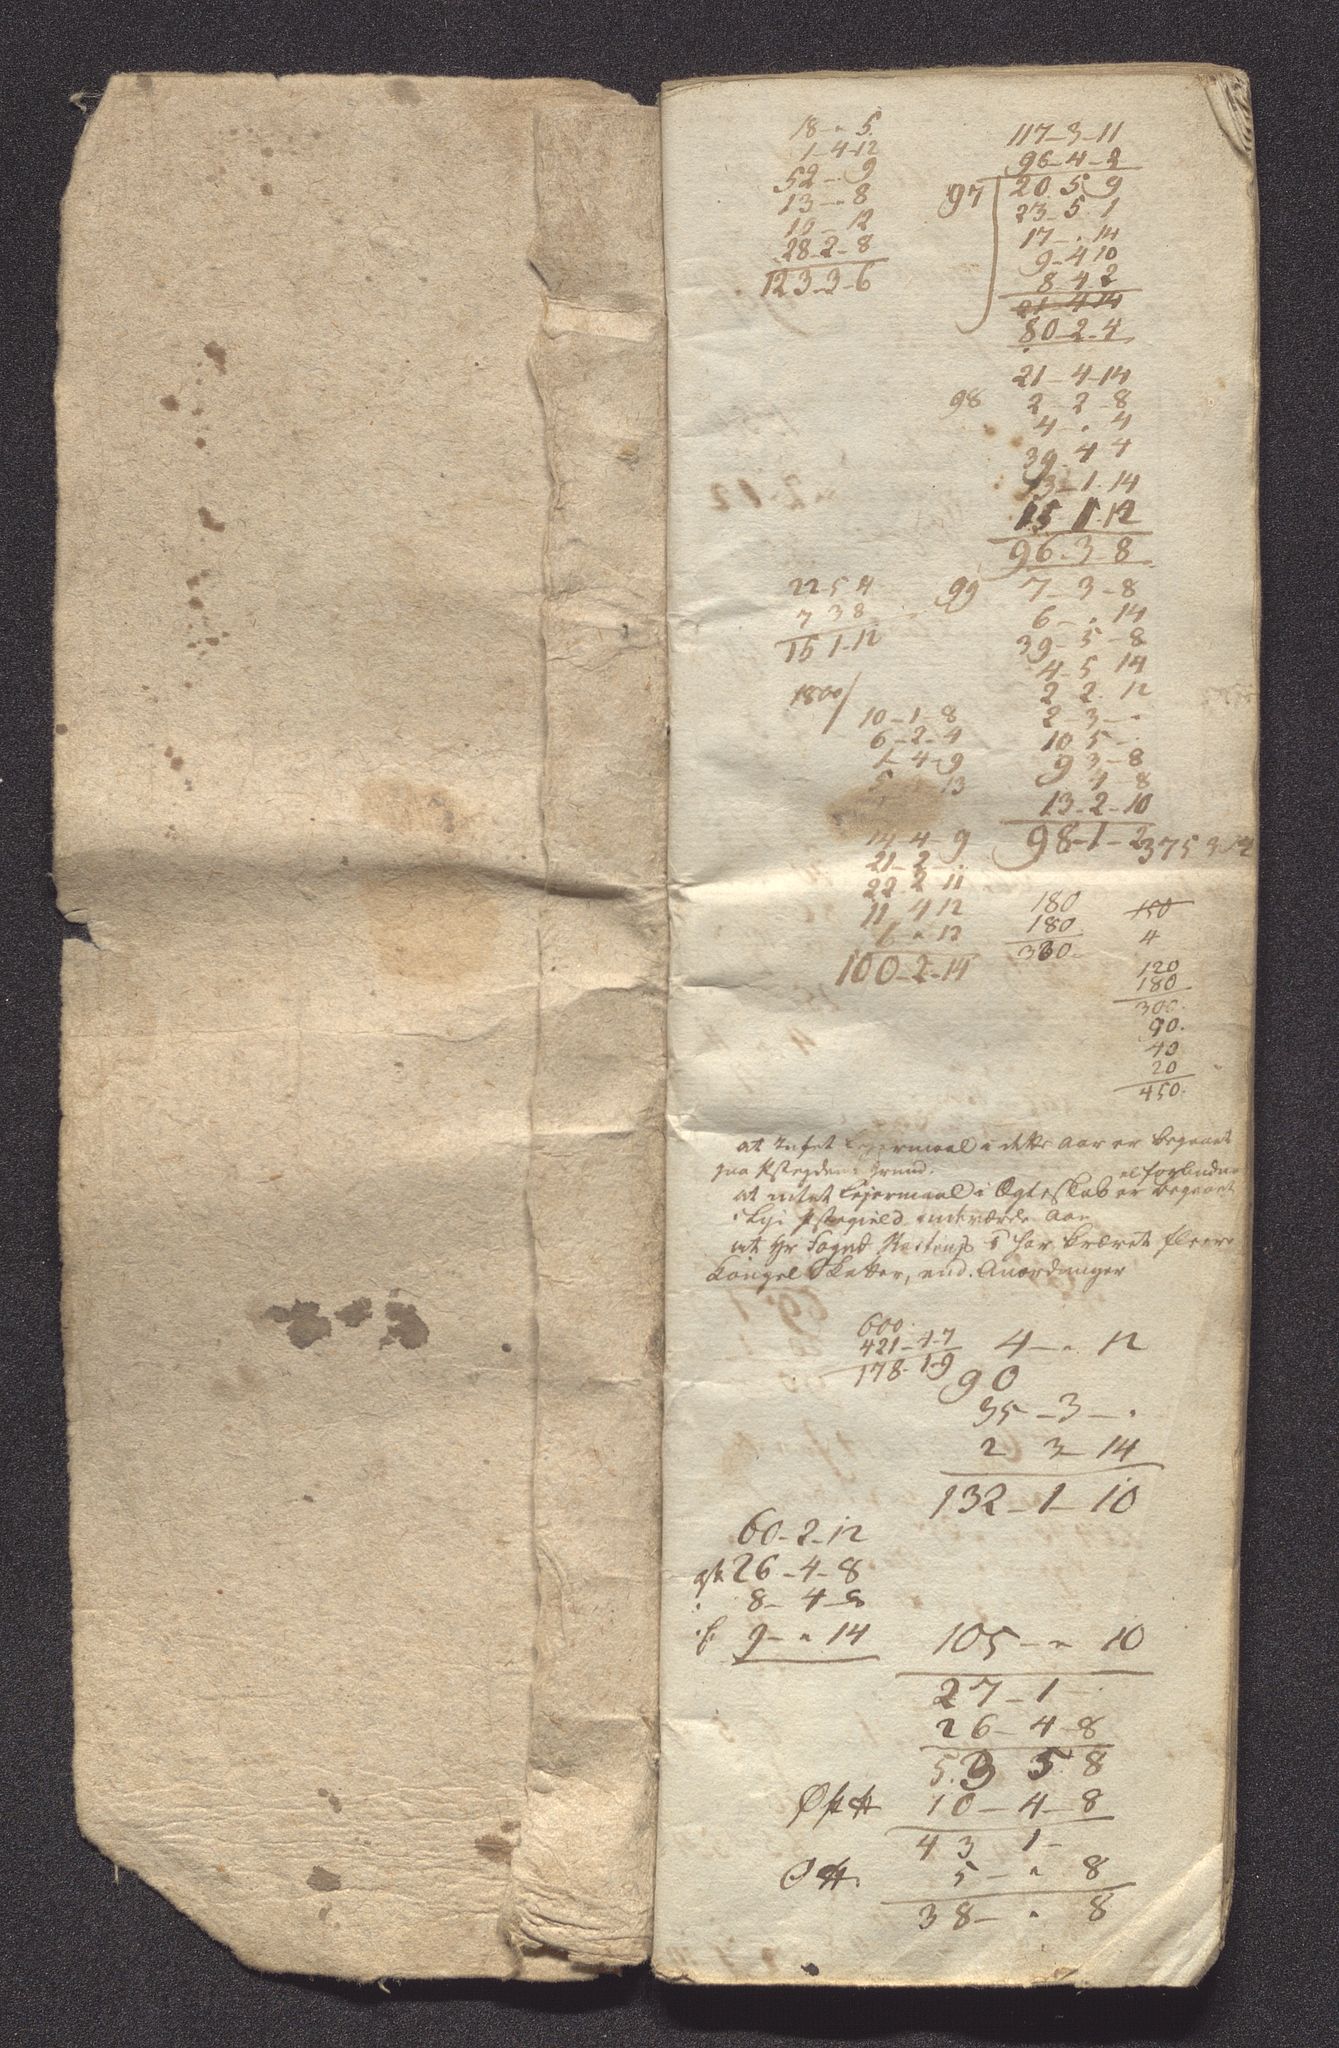 18 - " 5.
1 - 4 - 12
52 - . 9
13 - " 8
10 - 12
28 - 2 - 8
123 - 3 - 6
117 - 3 - 11
96 - 4 - 2
97 20. 5 9
23 - 5 1
17 - . 14
9 - 4 10
8 4 2
21 - 4 14
80 - 2 - 4
21 - 4 - 14
98 2 - 2 - 8
4 - " 4
39 - 4 4
13 - 1 - 14
15 1 - 12
96 - 3 - 8
22 - 5 4
7 3 8
15 1 - 12
99 7 - 3 - 8
6 - " 14
39 - 5 - 8
4 - 5 14
2 2 . 12
2 - 3 - "
10 5 -
9 3 - 8
4 8
13 - 2 - 10
98 - 1 - 2
375 3 12
1800/
10 - 1 - 8
6 - 2 - 4
1 - 4 - 9
13
14 4 - 9
21 - 2 - .
22 2 11
11 4 12
" 13
100 - 2 - 14
180
180
360
150
4
120
180
300.
90.
40
20
450.
at intet Lejermaal i dette Aar er begaaet
paa grund.
el forbudne
at intet Lejermaal i Ægteskab er begaaet
i Aar
at Hr Foged har krævet fleere
Kongel Skatter, end Anordninger
600.
421 - 4 - 7
178 - 1 - 9
4 - " 12
90
35 - 3 - "
2 3 - 14
132 - 1 - 10
60 - 2 - 12
26 - 4 - 8
8 - 4 - 8
9 - " 14
105 - " 10
27 - 1 -
26 - 4 - 8
53 5 8
10 - 4 - 8
43 1 -
5 - " 8
38 - " 8